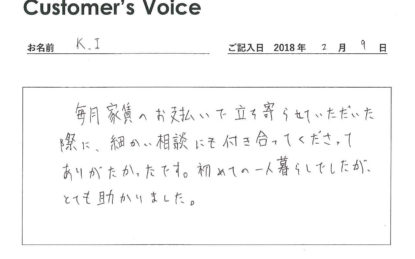 Customer's Voice
お名前 K.I ご記入日 2018年 2月 9日
毎月家賃のお支払いで立ち寄らせていただいた
際に、細かい相談にも付き合ってくださって
ありがたかったです。初めての一人暮らしでしたが、
とても助かりました。